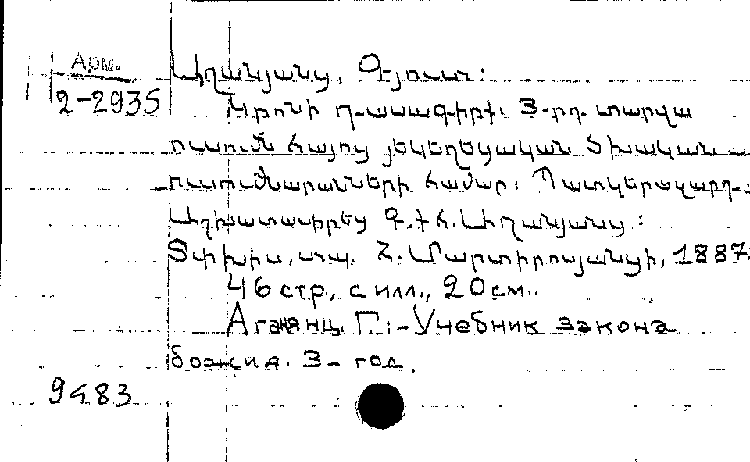 Арм.
2-2935
Աղանյանց, Գյուտ:
Կրոնի դասագիրք: 3-րդ տարվա
ուսումն հայոց յեկեղեցական ծխական
ուսումնարանների համար: Պատկերազարդ.:
Աշխատասիրեց Գ. քհ. Աղանյանց:
Տփխիս, տպ. Հ. Մարտիրոսյանցի, 1887:
46 стр., с илл., 20см..
Аганянц. Г.:-Учебник закона
божия. 3- год.
9483